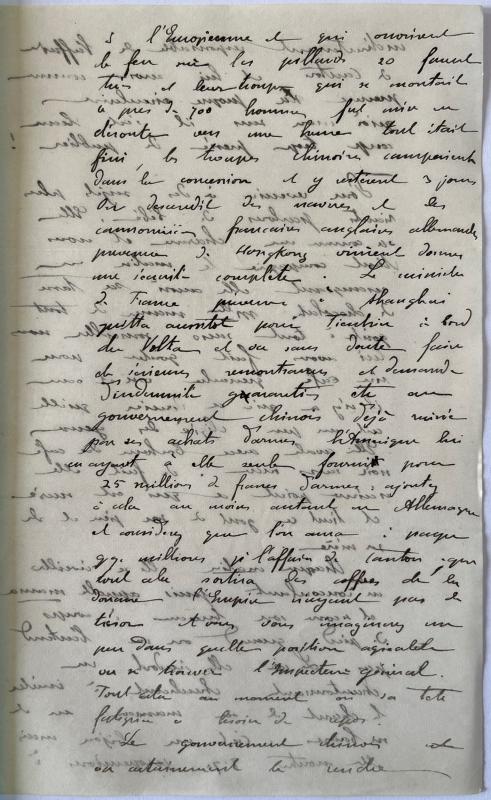 à l'Européenne et qui ouvrirent
le feu sur les pillards 20 furent
tués et leur troupe qui se montait
à près de 700 hommes fut mise en
déroute vers une heure tout était
fini, les troupes chinoises campèrent
dans la concession et y restèrent 3 jours
On descendit des navires et des
canonnières françaises anglaises allemandes
de Hongkong vinrent donner
une sécurité complète. Le ministre
de France à Shanghai
quitta aussitôt pour Tientsin à bord
du Volta et va sans doute faire
de sérieuses remontrances et demande
d'indemnité garanties etc au
gouvernement chinois déjà ruiné
par ses achats d'armes l'Amérique lui
en ayant à elle seule fournit pour
25 millions de francs d'armes; ajoutez
à cela au moins autant en Allemagne
et considérez que l'on aura à payer
millions pr l'affaire de Canton que
tout cela sortira des coffres de la
Douane l'Empire n'ayant pas de
trésor et vous vous imaginerez un
peu dans quelle position agréable
va se trouver l'Inspecteur général.
Tout cela au moment où sa tête
fatiguée a besoin de repos
Le gouvernement chinois
va certainement le rendre